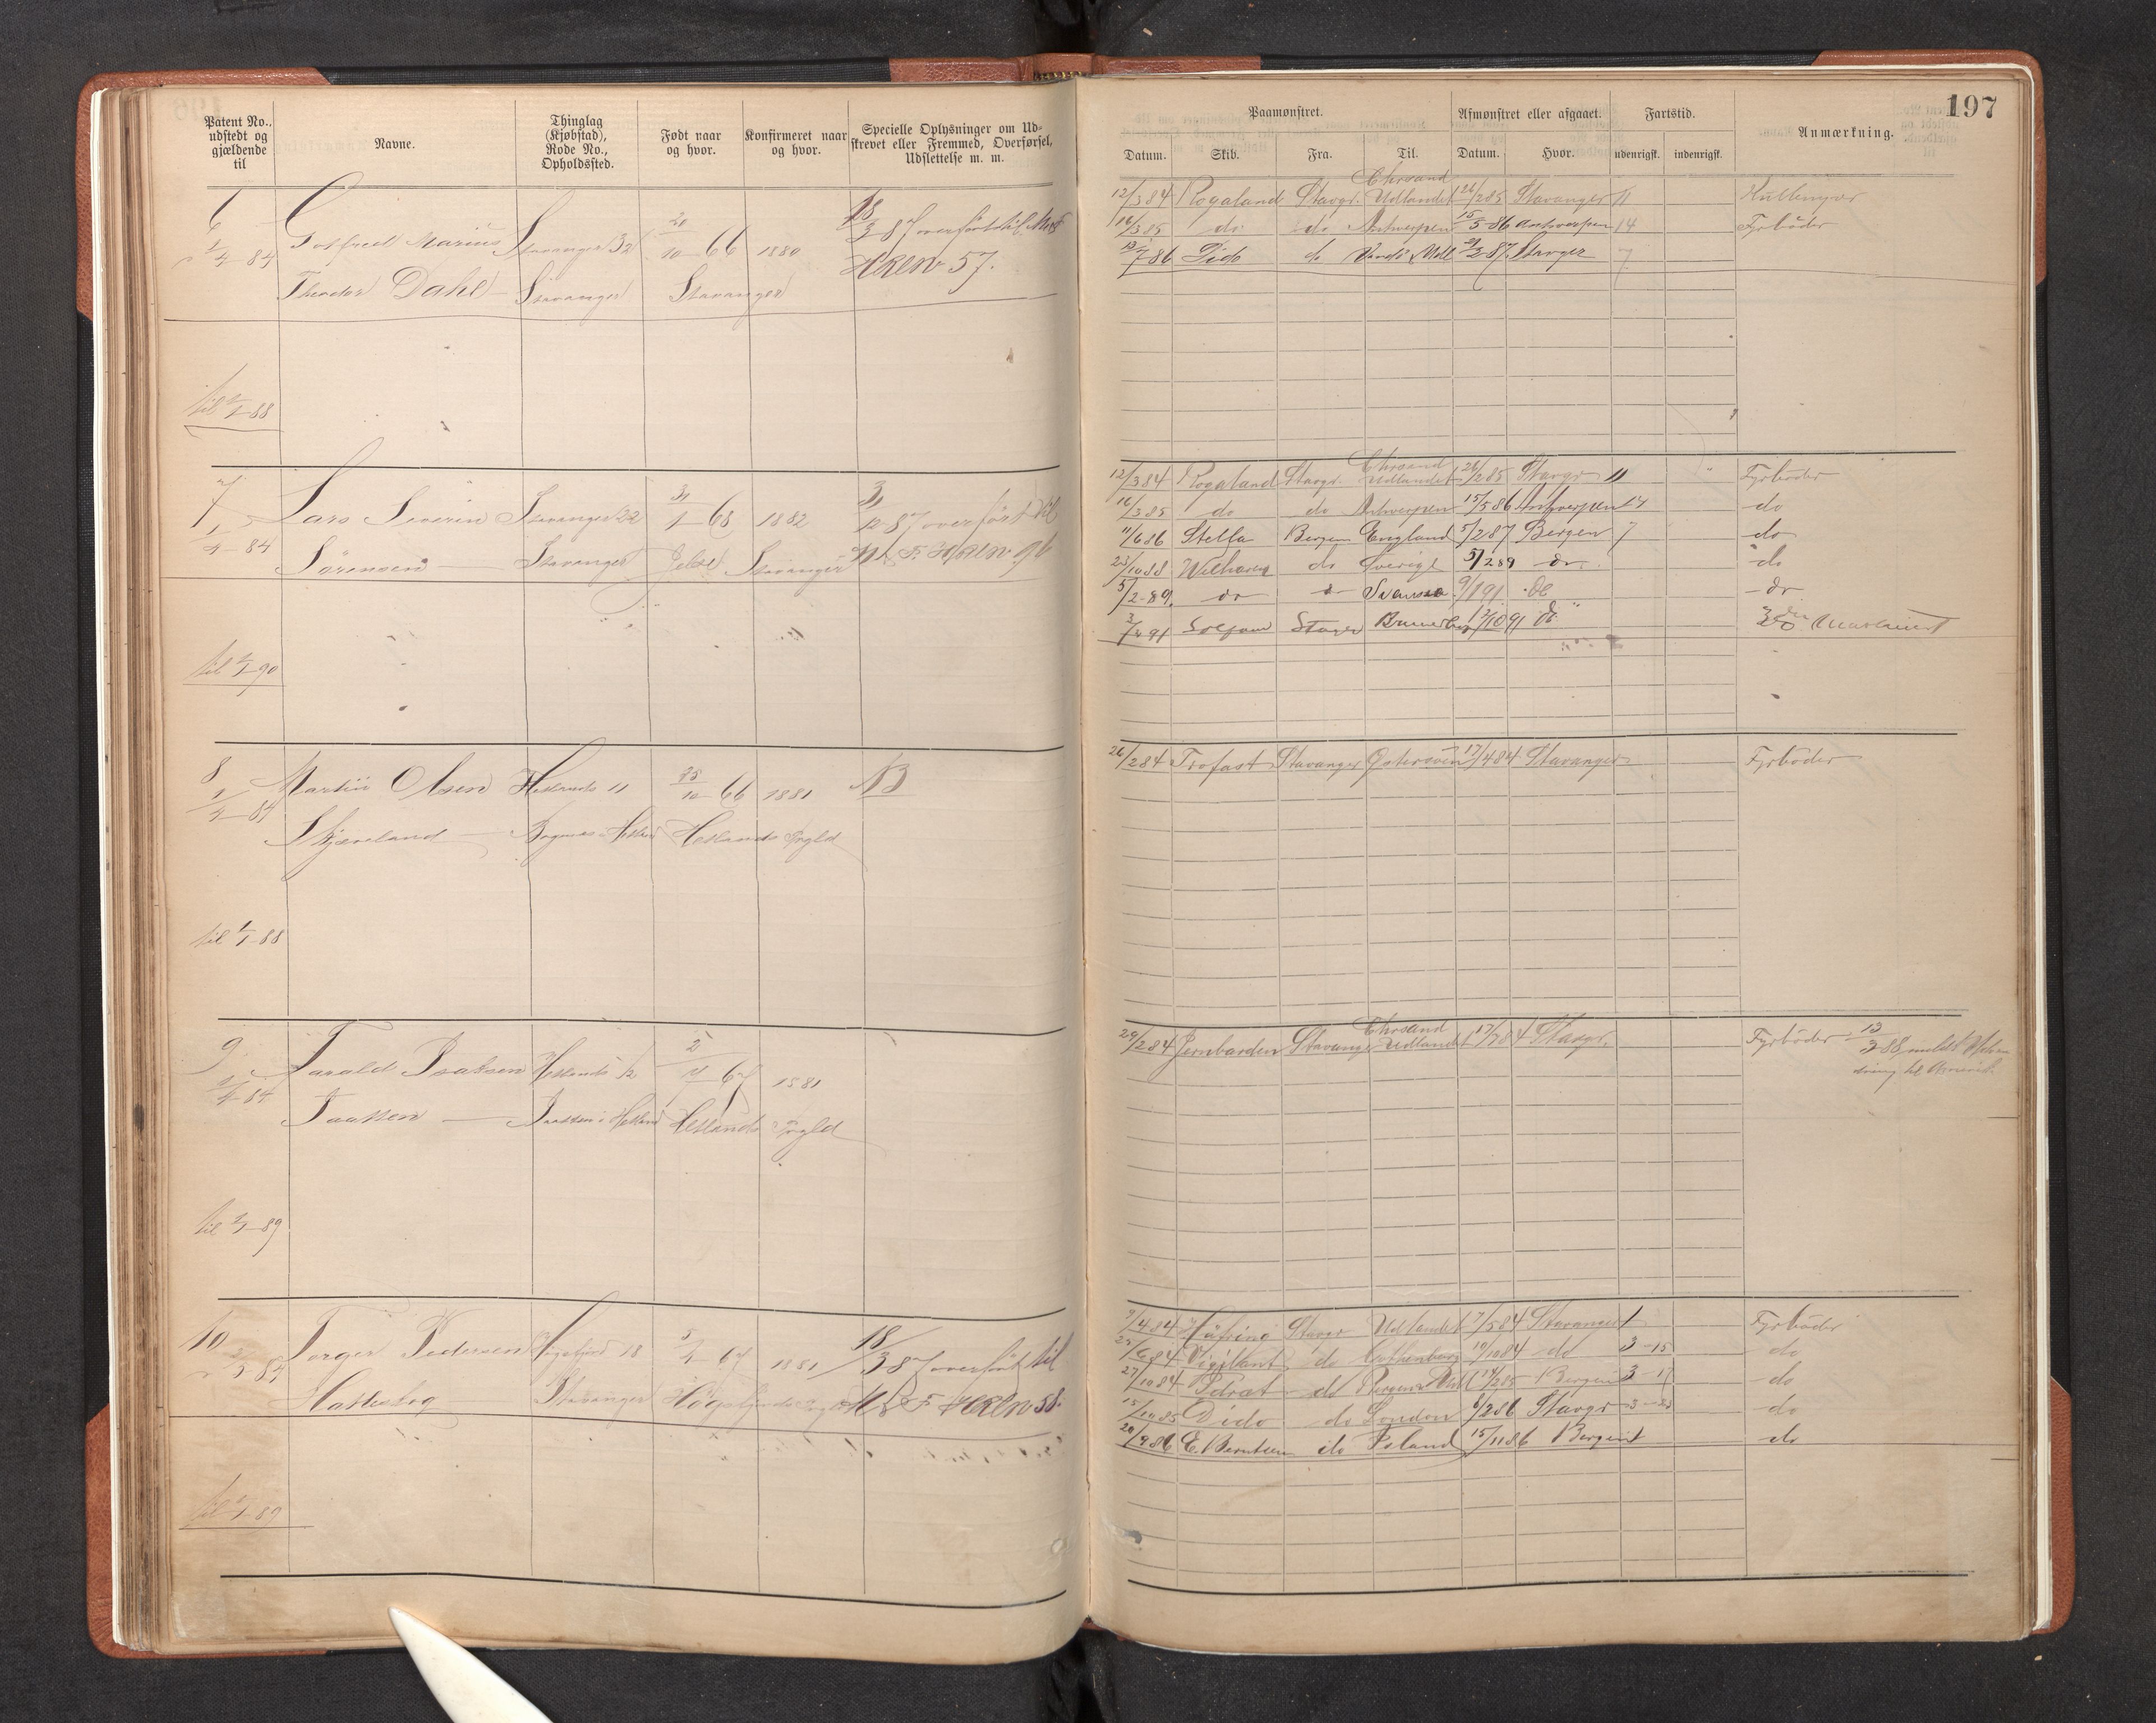 Patent No., udstedt og gjældende til
Navne.
Thinglag (Kjøbstad), Rode No., Opholdssted.
Født naar og hvor.
Konfirmeret naar og hvor.
Specielle Oplysninger om Udskrevet eller Fremmed, Overførsel, Udslettelse m. m.
6 Gotfred Marius Stavanger 32 20/10 66 1880 18/3 87 overført til M & F
1/4 84 Theodor Dahl Stavanger Stavanger HREN 57.
til 1/1 88
7 Lars Severin Stavanger 22 3/1 68 1882 3/12 87 overført til
1/4 84 Sörensen Stavanger Jelse Stavanger M & F HREN 96
til 1/1 90
8 Martin Olsen Hetlands 11 25/10 66 1881 N B
1/4 84 Skjæveland Hetlands Prgld
til 1/1 88
9 Tarald Isaksen Hetlands 12 67 1881
1/4 84 Taasten Taasten i Hetland Hetlands Prgld
til 1/1 89
10 Torger Pedersen Høgsfjord 18 5/4 67 1881 18/3 87 overført til
84 Stavanger Høgsfjords M & F HREN 58.
til 1/1 89
197
Paamønstret. Afmønstret eller afgaaet. Fartstid. Anmærkning.
Datum. Skib. Fra. Til. Datum. Hvor. udenrigsk. indenrigsk.
Chrsand
12/3 84 Rogaland Stavgr. Udlandet 26/2 85 Stavanger 11 Kullemper
16/3 85 do do Antwerpen 15/5 86 Antwerpen 14 Fyrbøder
13/7 86 Dido do 87 Stavger 7
Chrsand
12/3 84 Rogaland Stavgr. Udlandet 26/2 85 Stavgr 11 Fyrbøder
16/3 85 do do Antwerpen 15/5 86 Antwerpen 14 do
11/6 86 Stella Bergen England 5/2 87 Bergen 7 do
25/10 88 Welhaven do Sverige 5/2 89 do do
5/2 89. do do Svansea 9/1 91 do do
91 Solfond Stavger 12/10 91 do 3die Maskinist
26/2 84 Trofast Stavanger Østersøen 17/4 84 Stavanger Fyrbøder
Chrsand
29/2 84 Jernbarden Stavanger Udlandet 17/7 84 Stavgr. Fyrbøder 13/3 88 meldt Udvan
dring til Amerik.
9/4 84 Häfring Stavgr Udlandet 7/5 84 Stavanger 1 Fyrbøder
25/6 84 Vigilant do Gothenborg 19/10 84 do 3-15 do
27/10 84 do Bergen Udl 14/2 85 Bergen 3-17 do
15/10 85 Dido do London 6/2 86 Stavgr 3-23 do
20/9 86 E. Berntsen do Island 15/11 86 Bergen 1 do